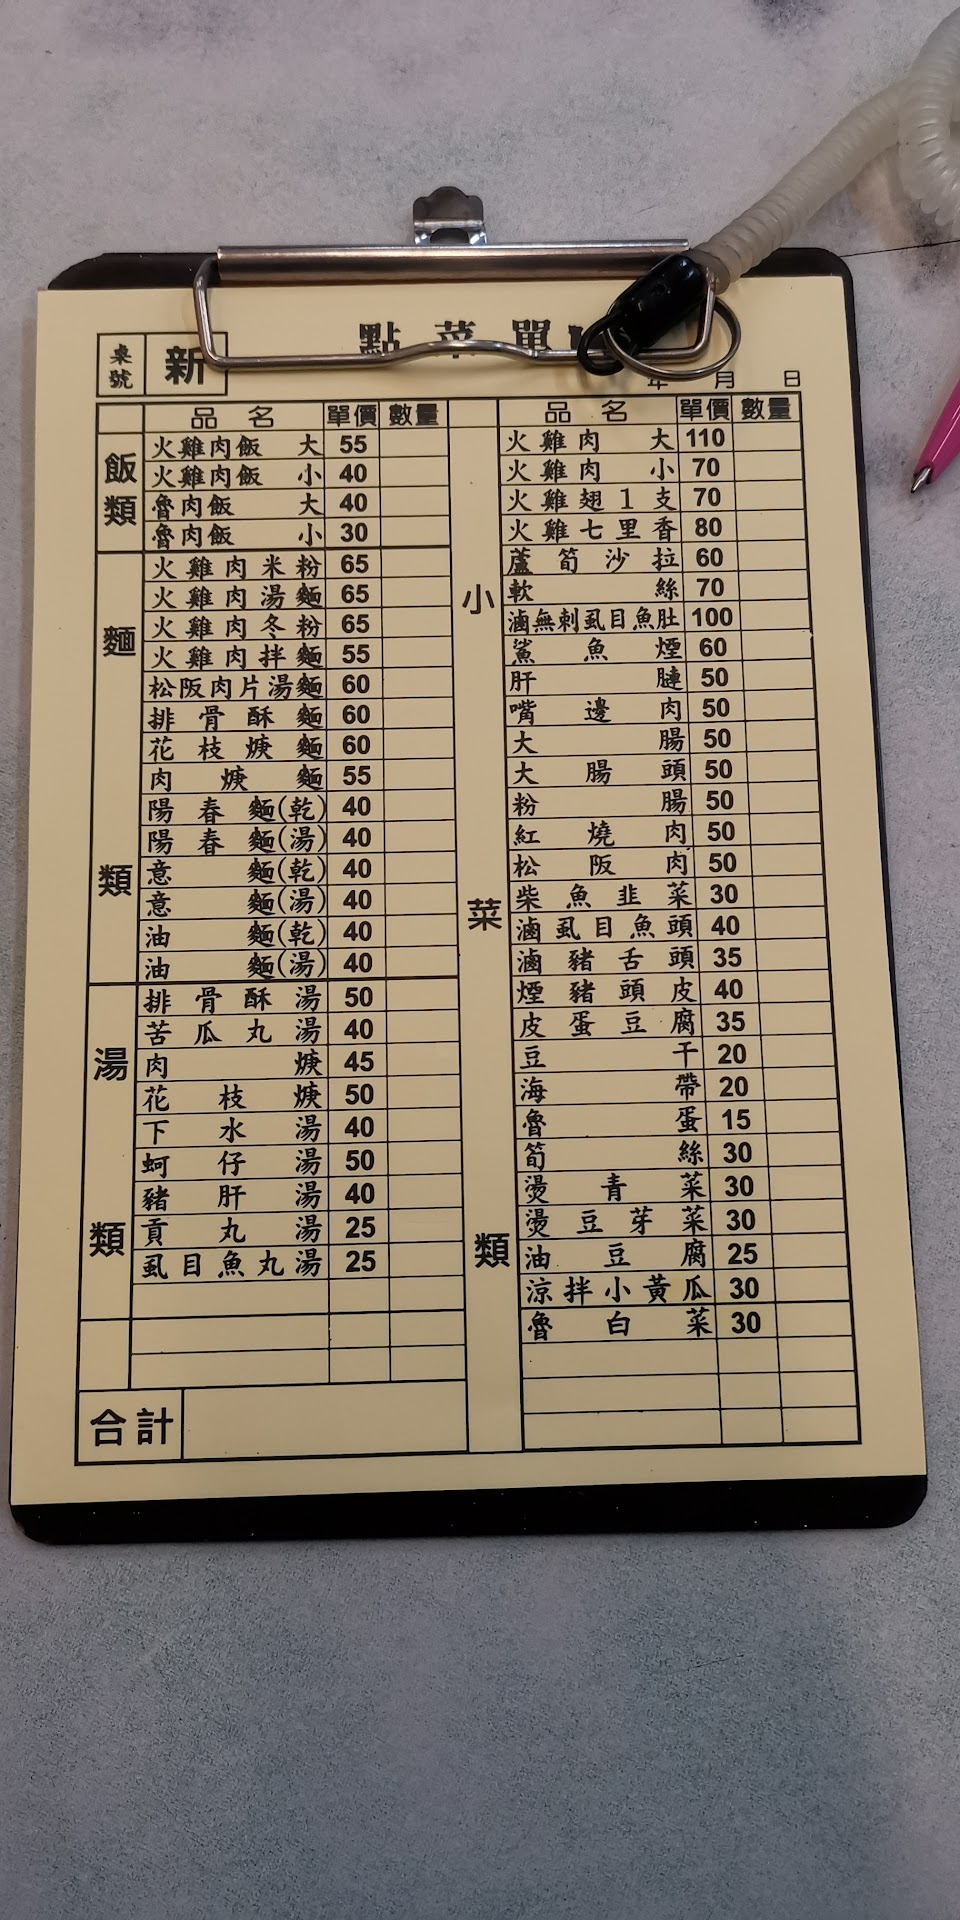 點菜單
桌號 新
年 月 日
品名 單價 數量
飯類
火雞肉飯 大 55
火雞肉飯 小 40
魯肉飯 大 40
魯肉飯 小 30
麵類
火雞肉米粉 65
火雞肉湯麵 65
火雞肉冬粉 65
火雞肉拌麵 55
松阪肉片湯麵 60
排骨酥麵 60
花枝焿麵 60
肉焿麵 55
陽春麵(乾) 40
陽春麵(湯) 40
意麵(乾) 40
意麵(湯) 40
油麵(乾) 40
油麵(湯) 40
湯類
排骨酥湯 50
苦瓜丸湯 40
肉焿 45
花枝焿 50
下水湯 40
蚵仔湯 50
豬肝湯 40
貢丸湯 25
虱目魚丸湯 25
合計
品名 單價 數量
小菜類
火雞肉 大 110
火雞肉 小 70
火雞翅1支 70
火雞七里香 80
蘆筍沙拉 60
軟絲 70
滷無刺虱目魚肚 100
鯊魚煙 60
肝腱 50
嘴邊肉 50
大腸 50
大腸頭 50
粉腸 50
紅燒肉 50
松阪肉 50
柴魚韭菜 30
滷虱目魚頭 40
滷豬舌頭 35
煙豬頭皮 40
皮蛋豆腐 35
豆干 20
海帶 20
魯蛋 15
筍絲 30
燙青菜 30
燙豆芽菜 30
油豆腐 25
涼拌小黃瓜 30
魯白菜 30